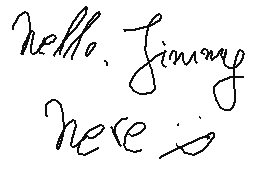 hello. Jimmy
here is